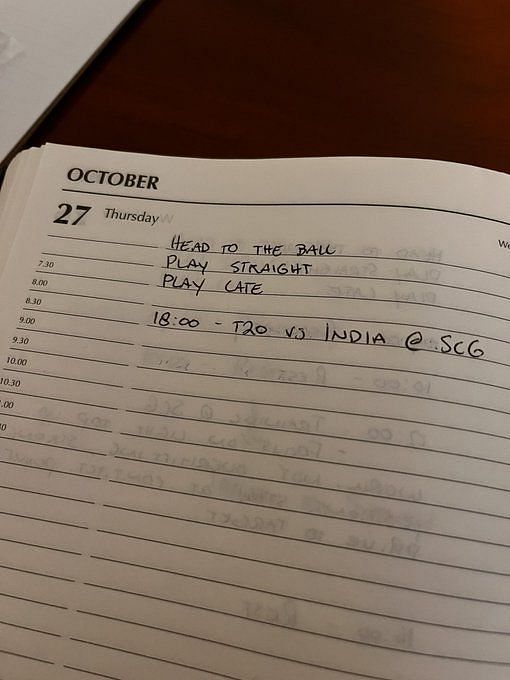 OCTOBER
27 Thursday
HEAD TO THE BALL
7.30 PLAY STRAIGHT
8.00 PLAY LATE
8.30
9.00 18:00 - T20 VS INDIA @ SCG
9.30
10.00
10.30